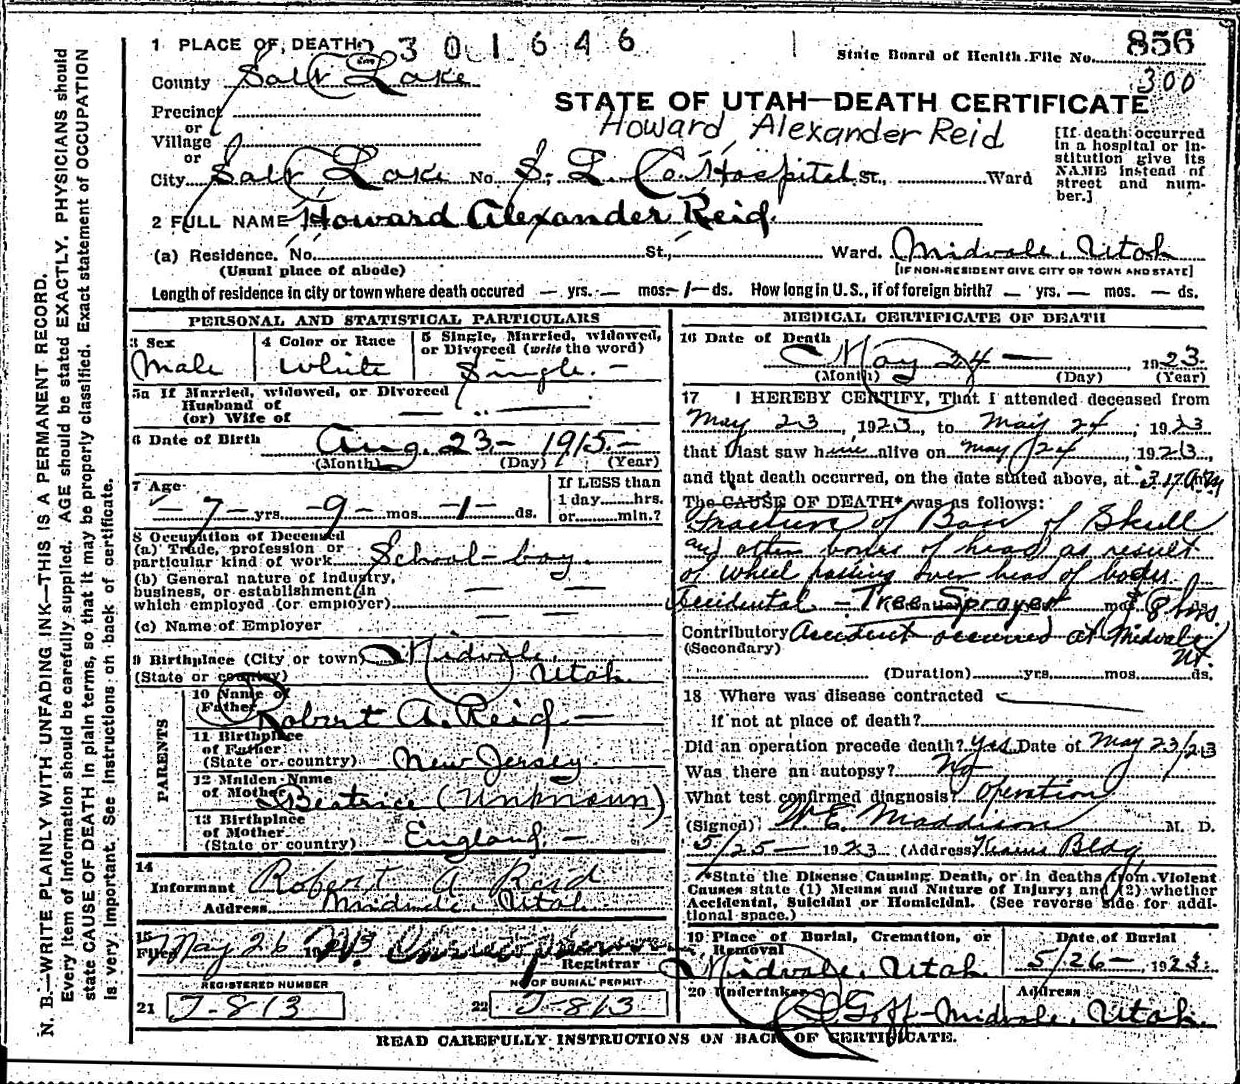 1 PLACE OF DEATH 2301646
State Board of Health File No. 856
300
County Salt Lake
STATE OF UTAH—DEATH CERTIFICATE
Howard Alexander Reid
Precinct
or
Village
or
City Salt Lake No. S. L. Co. Hospital St., Ward
[If death occurred in a hospital or institution give its NAME instead of street and number.]
2 FULL NAME Howard Alexander Reid.
(a) Residence. No. St., Ward. Midvale, Utah
(Usual place of abode) [IF NON-RESIDENT GIVE CITY OR TOWN AND STATE]
Length of residence in city or town where death occured — yrs. — mos. 1 ds. How long in U. S., if of foreign birth? — yrs. — mos. — ds.
PERSONAL AND STATISTICAL PARTICULARS
3 Sex Male
4 Color or Race White
5 Single, Married, widowed, or Divorced (write the word) Single.
5a If Married, widowed, or Divorced
Husband of
(or) Wife of
6 Date of Birth Aug. 23 - 1915.
(Month) (Day) (Year)
7 Age 7 yrs. 9 mos. 1 ds.
If LESS than 1 day hrs. or min.?
8 Occupation of Deceased
(a) Trade, profession or particular kind of work School-boy.
(b) General nature of industry, business, or establishment in which employed (or employer)
(c) Name of Employer
9 Birthplace (City or town) Midvale,
(State or country) Utah.
PARENTS
10 Name of Father Robert A. Reid
11 Birthplace of Father (State or country) New Jersey
12 Maiden Name of Mother Beatrice (Unknown)
13 Birthplace of Mother (State or country) England.
14
Informant Robert A Reid
Address Midvale, Utah
15
Filed May 26 1923
Registrar
REGISTERED NUMBER
21 J-813
NO OF BURIAL PERMIT
22 J-813
MEDICAL CERTIFICATE OF DEATH
16 Date of Death
May 24 — 1923.
(Month) (Day) (Year)
17 I HEREBY CERTIFY, That I attended deceased from
May 23, 1923, to May 24, 1923
that I last saw him alive on May 24, 1923,
and that death occurred, on the date stated above, at 3.17 A.M
The CAUSE OF DEATH* was as follows:
Fracture of Base of Skull
and other bones of head as result
of wheel passing over head of body.
Accidental — Tree Sprayer mos. 8 hrs.
Contributory Accident occurred at Midvale, Ut.
(Secondary)
(Duration) yrs. mos. ds.
18 Where was disease contracted
if not at place of death?
Did an operation precede death? Yes Date of May 23/23
Was there an autopsy? No
What test confirmed diagnosis? operation
(Signed) W. E. Maddison M. D.
5/25 — 1923 (Address) Kearns Bldg
*State the Disease Causing Death, or in deaths from Violent Causes state (1) Means and Nature of Injury; and (2) whether Accidental, Suicidal or Homicidal. (See reverse side for additional space.)
19 Place of Burial, Cremation, or Removal Midvale, Utah
Date of Burial 5/26 — 1923.
20 Undertaker Goff
Address Midvale, Utah.
READ CAREFULLY INSTRUCTIONS ON BACK OF CERTIFICATE.
N. B.—WRITE PLAINLY WITH UNFADING INK—THIS IS A PERMANENT RECORD.
Every item of information should be carefully supplied. AGE should be stated EXACTLY. PHYSICIANS should
state CAUSE OF DEATH in plain terms, so that it may be properly classified. Exact statement of OCCUPATION
is very important. See instructions on back of certificate.